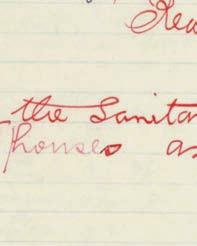 the Sanita
houses as